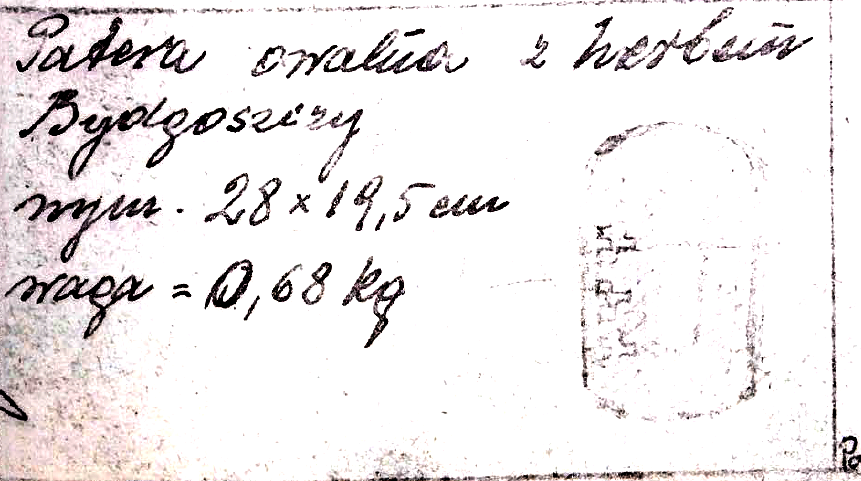 Patera owalna z herbem
Bydgoszczy
wym. 28 x 19,5 cm
waga = 0,68 kg